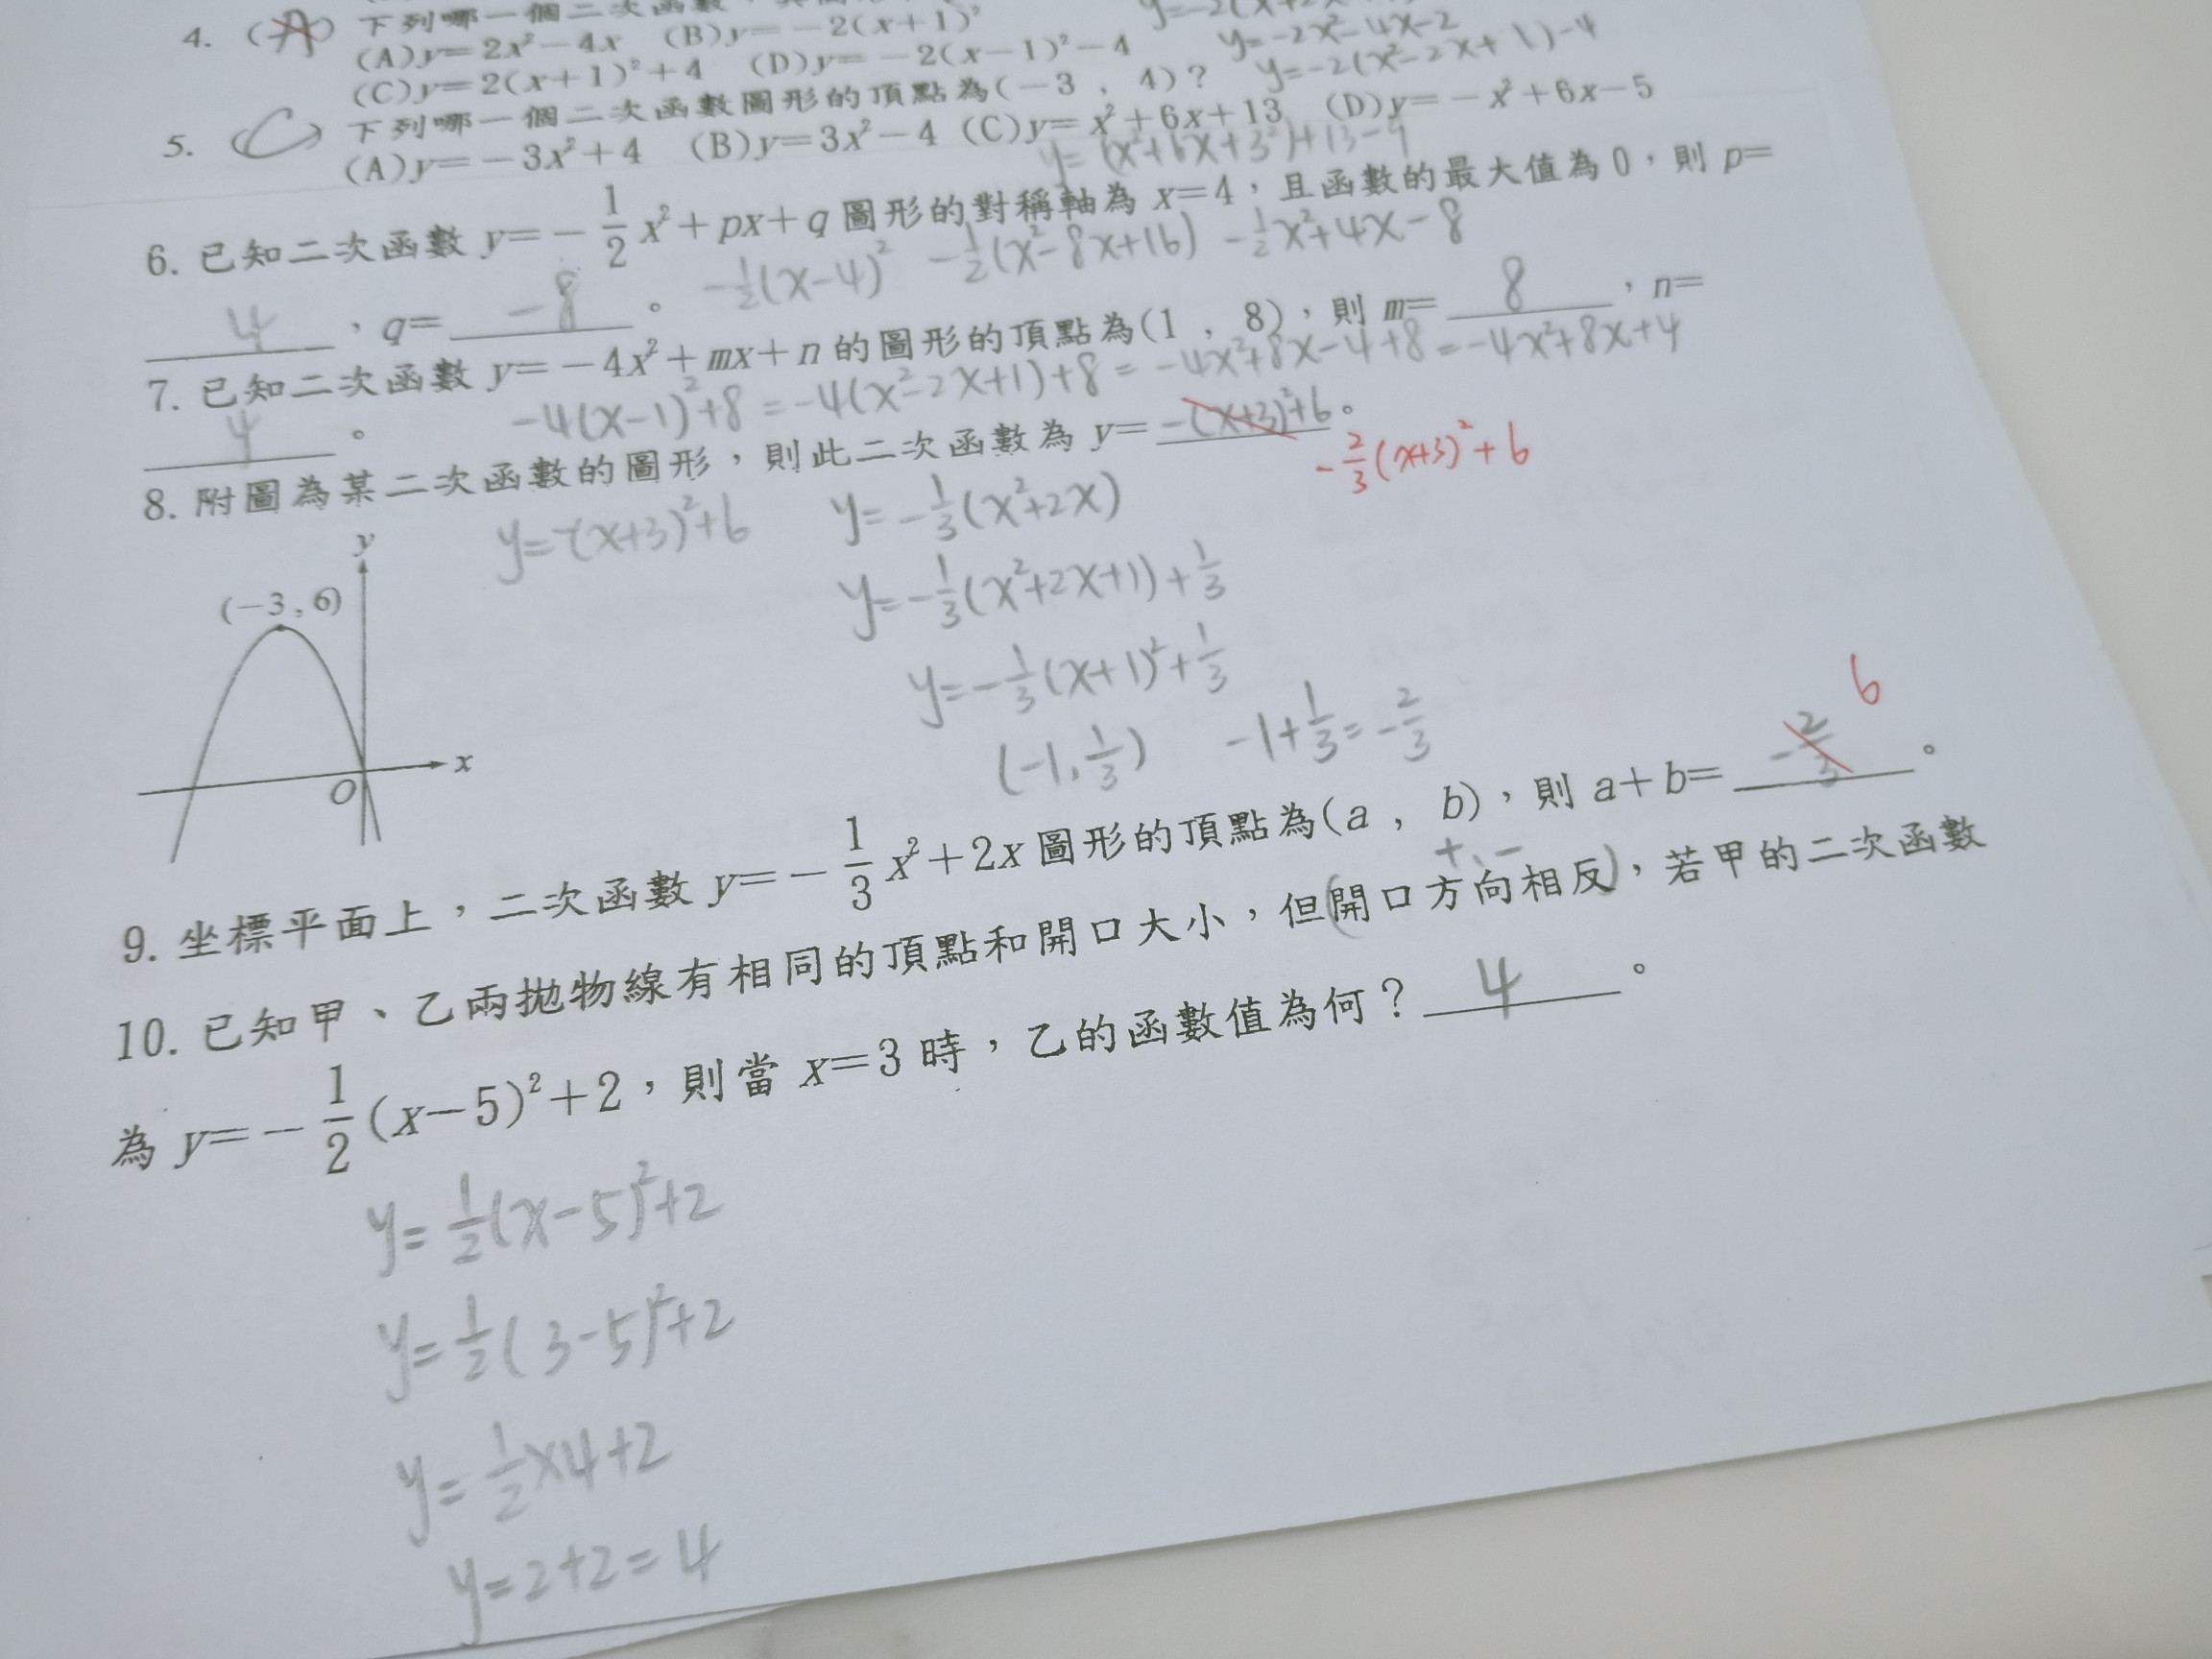 4. (A) 下列哪一個二次函數
(A)y=2x²-4x (B)y=-2(x+1)²
y=-2x²-4x-2
(C)y=2(x+1)²+4 (D)y=-2(x-1)²-4
y=-2(x²-2x+1)-4
5. (C) 下列哪一個二次函數圖形的頂點為(-3，4)？
(A)y=-3x²+4 (B)y=3x²-4 (C)y=x²+6x+13 (D)y=-x²+6x-5
y=(x²+6x+3²)+13-9
6. 已知二次函數 y=-1/2x²+px+q 圖形的對稱軸為 x=4，且函數的最大值為 0，則 p=
4，q=-8。
-1/2(x-4)² -1/2(x²-8x+16) -1/2x²+4x-8
7. 已知二次函數 y=-4x²+mx+n 的圖形的頂點為(1，8)，則 m=8，n=
4。
-4(x-1)²+8=-4(x²-2x+1)+8=-4x²+8x-4+8=-4x²+8x+4
8. 附圖為某二次函數的圖形，則此二次函數為 y=-(x+3)²+6。
-2/3(x+3)²+6
y=-(x+3)²+6
y=-1/3(x²+2x)
y=-1/3(x²+2x+1)+1/3
y=-1/3(x+1)²+1/3
(-1,1/3) -1+1/3=-2/3
y
(-3,6)
x
O
9. 坐標平面上，二次函數 y=-1/3x²+2x 圖形的頂點為(a，b)，則 a+b=-2/3。
6
+、-
10. 已知甲、乙兩拋物線有相同的頂點和開口大小，但(開口方向相反)，若甲的二次函數
為 y=-1/2(x-5)²+2，則當 x=3 時，乙的函數值為何？4。
y=1/2(x-5)²+2
y=1/2(3-5)²+2
y=1/2×4+2
y=2+2=4